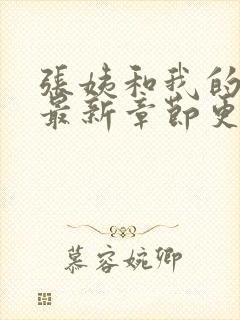 張姨和我的
最新章節更
慕容婉卿